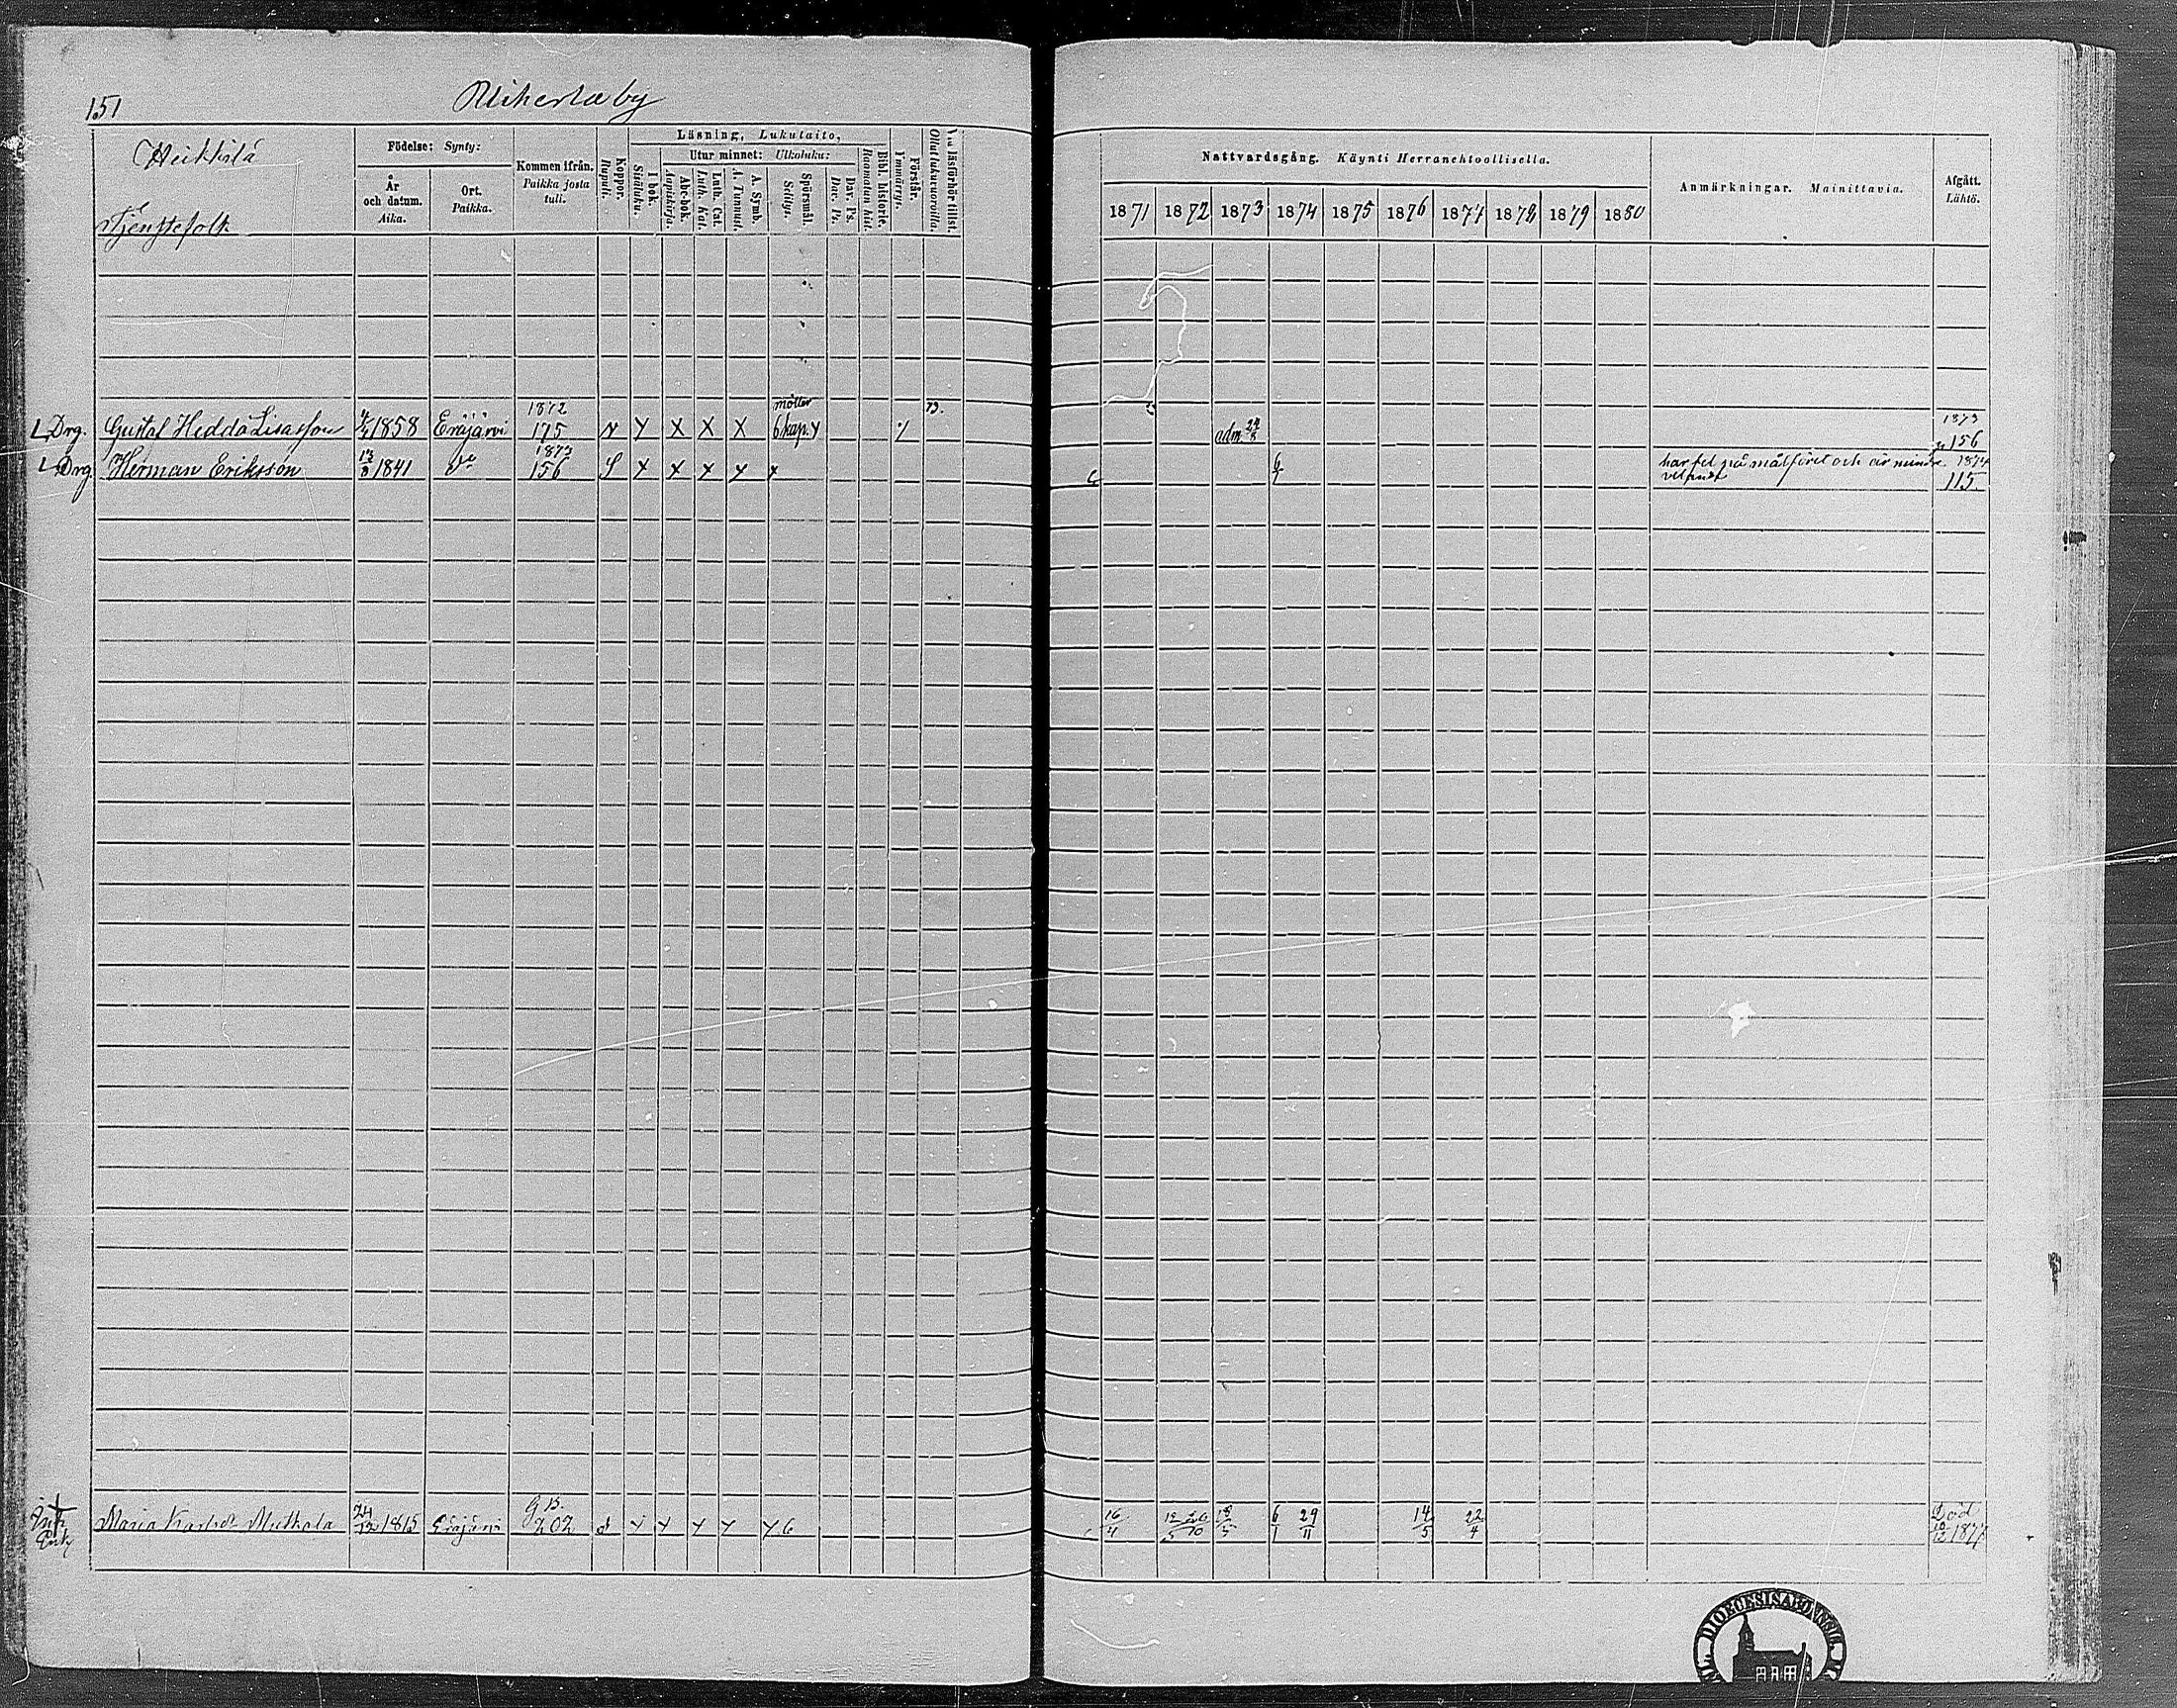 151
by
Heikkilä
Tjenstefolk
Födelse: Synty:
År och datum. Aika.
Ort. Paikka.
Kommen ifrån. Paikka josta tuli.
Koppor. Rupuli.
Läsning, Lukutaito,
I bok. Sisäluku.
Utur minnet: Ulkoluku:
Abc-bok. Aapiskirja.
Luth. Cat. Luth. Kat.
A. Symb. A. Tunnust.
Spörsmål. Selitys.
Dav. Ps. Dav. Ps.
Bibl. historie. Raamatun hist.
Förstår. Ymmärrys.
Vid läsförhör tillst. Ollut lukuvuoroilla.
Nattvardsgång. Käynti Herranehtoollisella.
1871 1872 1873 1874 1875 1876 1877 1878 1879 1880
Anmärkningar. Mainittavia.
Afgått. Lähtö.
Drg. Gustaf Hedda Lisasson 4/4 1858 Eräjärvi 1872 175 v y x x x 6 kap. y 73. adm. 24/8 1873 156
Drg. Herman Eriksson 13/8 1841 do 1873 156 S x x x y x 6/1 har fel på målföret och är mindre 1874 115
Maria Karlsdr 24/12 1815 Eräjärvi G.B. 202 y y y y y 6 16/4 6/1 29/11 14/5 22/4 Död 1877
DIOECESIS ABOENSIS